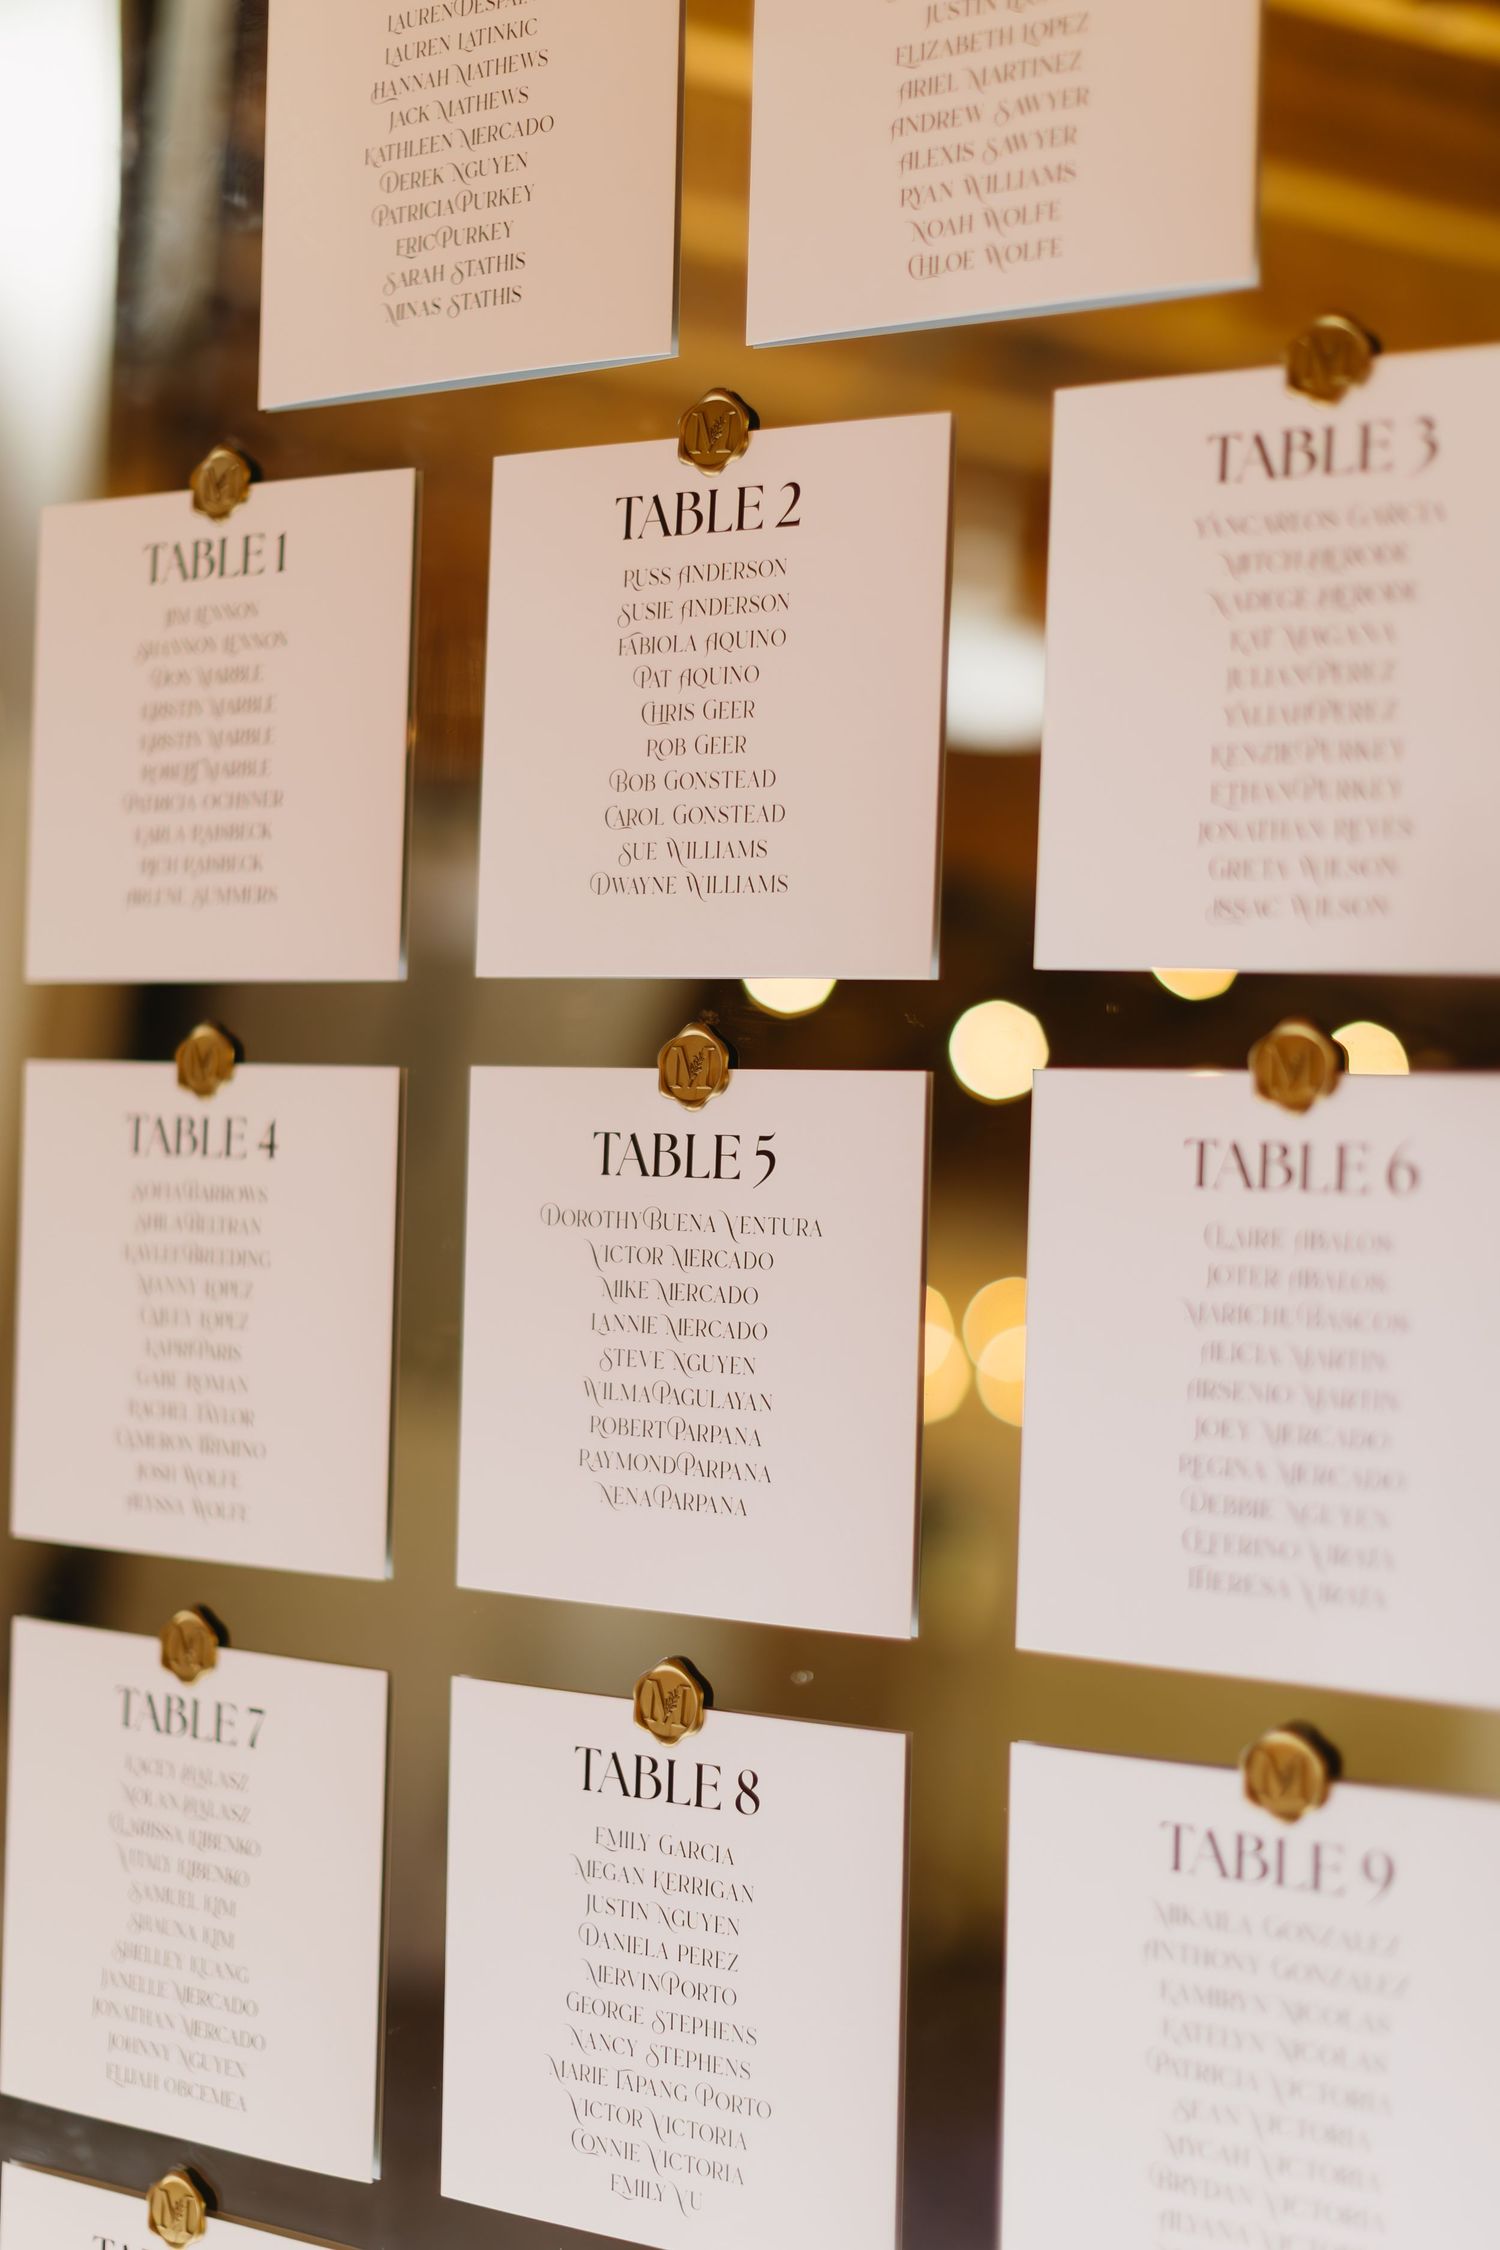 LAUREN
LAUREN LATINKIC
HANNAH MATHEWS
JACK MATHEWS
KATHLEEN MERCADO
DEREK NGUYEN
PATRICIA PURKEY
ERIC PURKEY
SARAH STATHIS
MINAS STATHIS
JUSTIN
ELIZABETH LOPEZ
ARIEL MARTINEZ
ANDREW SAWYER
ALEXIS SAWYER
RYAN WILLIAMS
NOAH WOLFE
CHLOE WOLFE
M
TABLE 1
JIM LENNON
SHANNON LENNON
DON MARBLE
KRISTIN MARBLE
KRISTIN MARBLE
ROBERT MARBLE
PATRICIA OCHSNER
CARLA RAISBECK
RICH RAISBECK
ARLENE SUMMERS
M
TABLE 2
RUSS ANDERSON
SUSIE ANDERSON
FABIOLA AQUINO
PAT AQUINO
CHRIS GEER
ROB GEER
BOB GONSTEAD
CAROL GONSTEAD
SUE WILLIAMS
DWAYNE WILLIAMS
M
TABLE 3
YENCARLOS GARCIA
MITCH HERODE
NADEGE HERODE
KAT MAGANA
JULIAN PEREZ
YALIAH PEREZ
KENZIE PURKEY
ETHAN PURKEY
JONATHAN REYES
GRETA WILSON
ISSAC WILSON
M
TABLE 4
SOFIA BARROWS
AHILA BELTRAN
KAYLEE BREEDING
MANNY LOPEZ
CARLEY LOPEZ
KAPRI PARIS
GABE ROMAN
RACHEL TAYLOR
CAMERON TRIMINO
JOSH WOLFE
ALYSSA WOLFE
M
TABLE 5
DOROTHY BUENA VENTURA
VICTOR MERCADO
MIKE MERCADO
LANNIE MERCADO
STEVE NGUYEN
WILMA PAGULAYAN
ROBERT PARPANA
RAYMOND PARPANA
NENA PARPANA
M
TABLE 6
CLAIRE ABALOS
JOTER ABALOS
MARICHU BASCOS
ALICIA MARTIN
ARSENIO MARTIN
JOEY MERCADO
REGINA MERCADO
DEBBIE NGUYEN
CEFERINO VIRATA
THERESA VIRATA
M
TABLE 7
KACEY BALASZ
NOLAN BALASZ
CLARISSA KIBENKO
VITALY KIBENKO
SAMUEL KIM
SHAUNA KIM
SHELLEY KUANG
JANELLE MERCADO
JONATHAN MERCADO
JOHNNY NGUYEN
ELIJAH OBCEMEA
M
TABLE 8
EMILY GARCIA
MEGAN KERRIGAN
JUSTIN NGUYEN
DANIELA PEREZ
MERVIN PORTO
GEORGE STEPHENS
NANCY STEPHENS
MARIE TAPANG PORTO
VICTOR VICTORIA
CONNIE VICTORIA
EMILY VU
M
TABLE 9
MIKAILA GONZALEZ
ANTHONY GONZALEZ
KAMIRYN NICOLAS
KATELYN NICOLAS
PATRICIA VICTORIA
SEAN VICTORIA
MYCAH VICTORIA
BRYDAN VICTORIA
ALYANA VICTORIA
M